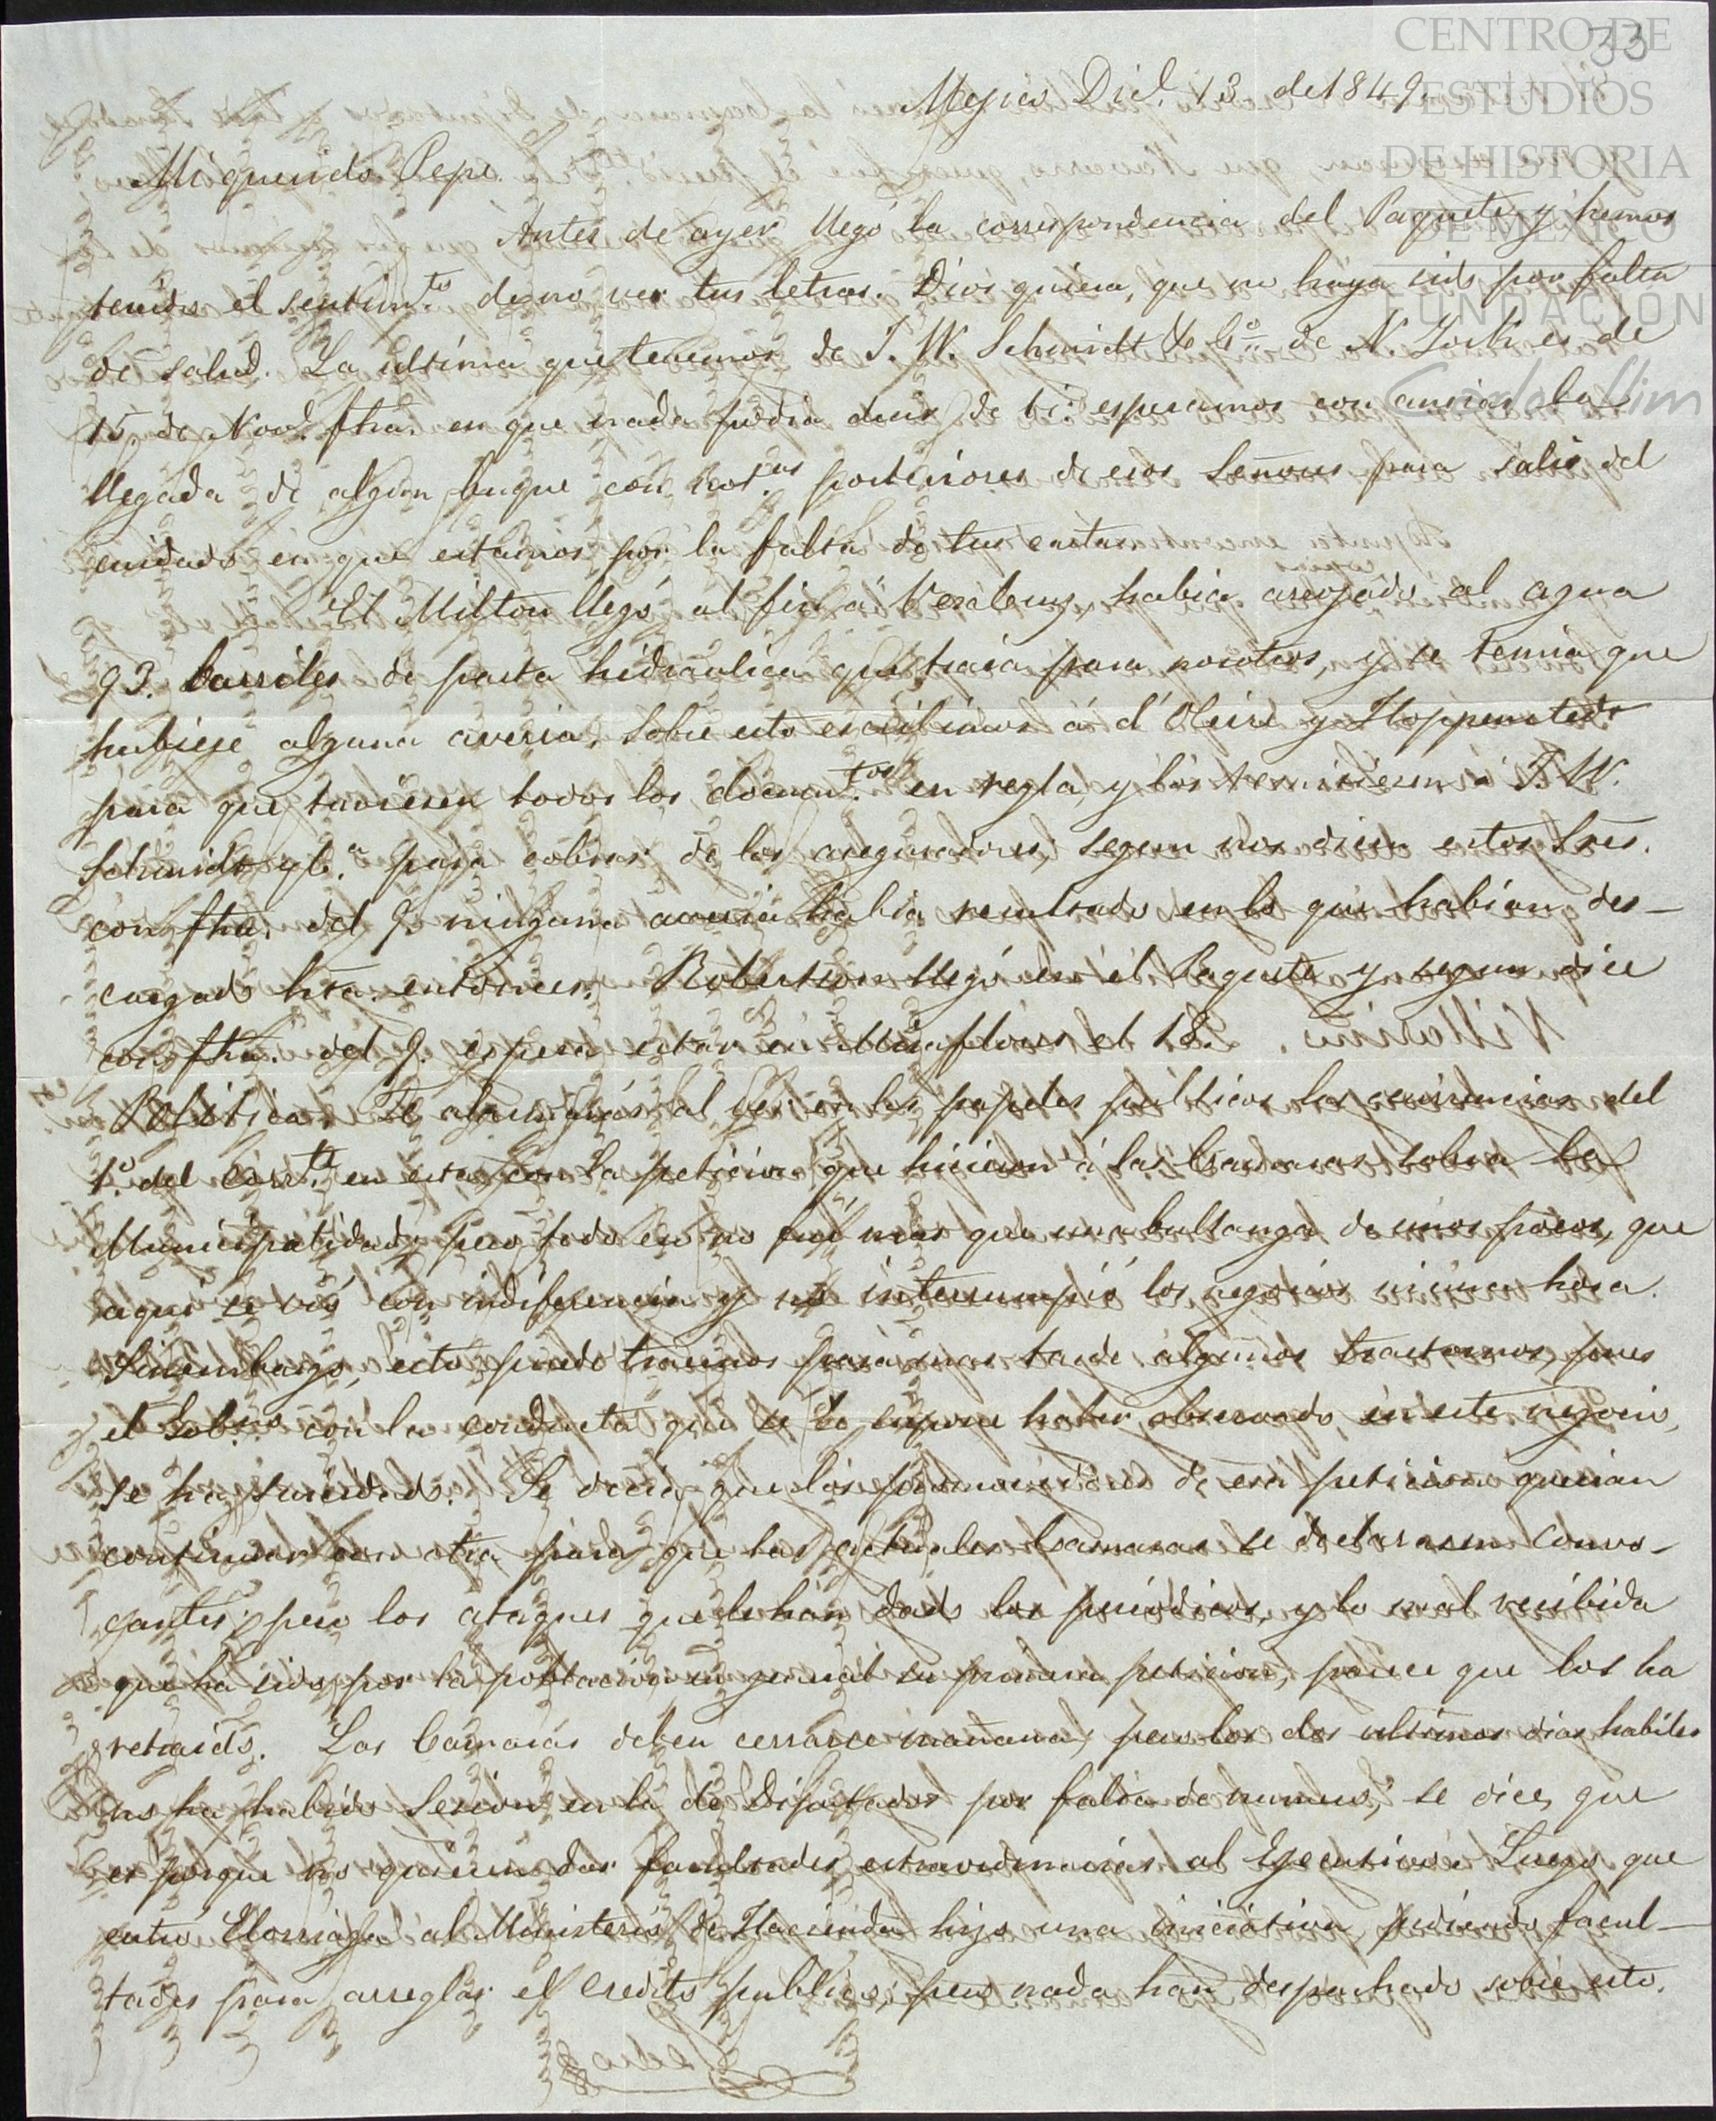 33
CENTRO DE
ESTUDIOS
DE HISTORIA
DE MÉXICO
FUNDACIÓN
Carlos Slim
Mejico Dice. 13 de 1849.
Mi querido Pepe.
Antes de ayer llegó la correspondencia del Paquete y hemos
tenido el sentimto. de no ver tus letras. Dios quiera, que no haya sido por falta
de salud. La ultima que tenemos de J. W. Schmidt & Co. de N. York es de
15 de Nove. fha. en que nada podia decir de ti: esperamos con ancias la
llegada de algun buque con posteriores de esos Señores para salir del
cuidado en que estamos por la falta de tus cartas.
El Milton llegó al fin á Veracruz, habia arrojado al agua
como
93. barriles de pasta hidraulica que traia para nosotros, y se temia que
hubiese alguna averia, sobre esto escribimos á d'Oleire y Hoppenstedt
para que tuviesen todos los documtos. en regla, y los remitiesen á J. W.
Schmidt y Ca. para cobrar de los aseguradores; segun nos dicen estos Sres.
con fha. del 9. ninguna averia habia resultado en lo que habian des-
cargado hta. entonces. Robertson llegó en el Paquete y segun dice
con fha. del 9. espera estar en Miraflores el 18.
Politica. Te al ver en los papeles publicos las ocurrencias del
1o. del corrte. en esta con la peticion que hicieron á las Camaras sobre la
Municipalidad; pero todo eso no fué mas que una bullanga de unos pocos, que
aqui se vió con indiferencia y no interrumpió los negocios ni una hora.
Sinembargo, esto puede traernos para mas tarde algunos trastornos, pues
el Gobno. con la conducta que se le supone haber observado en este negocio,
se ha suicidado. Se decia que los promovedores de esa peticion querian
continuar con otra para que las actuales Camaras se declarasen Convo-
cantes; pero los ataques que le han dado los periodicos, y lo mal recibida
que ha sido por la poblacion en general su primera peticion, parece que los ha
retraido. Las Camaras deben cerrarce mañana, pero los dos ultimos dias habiles
no ha habido Sesion en la de Diputados por falta de numero; se dice, que
es porque no quieren dar facultades estraordinarias al Ejecutivo. Luego que
entró Elorriaga al Ministerio de Hacienda hizo una iniciativa pidiendo facul-
tades para arreglar el credito publico; pero nada han despachado sobre esto.